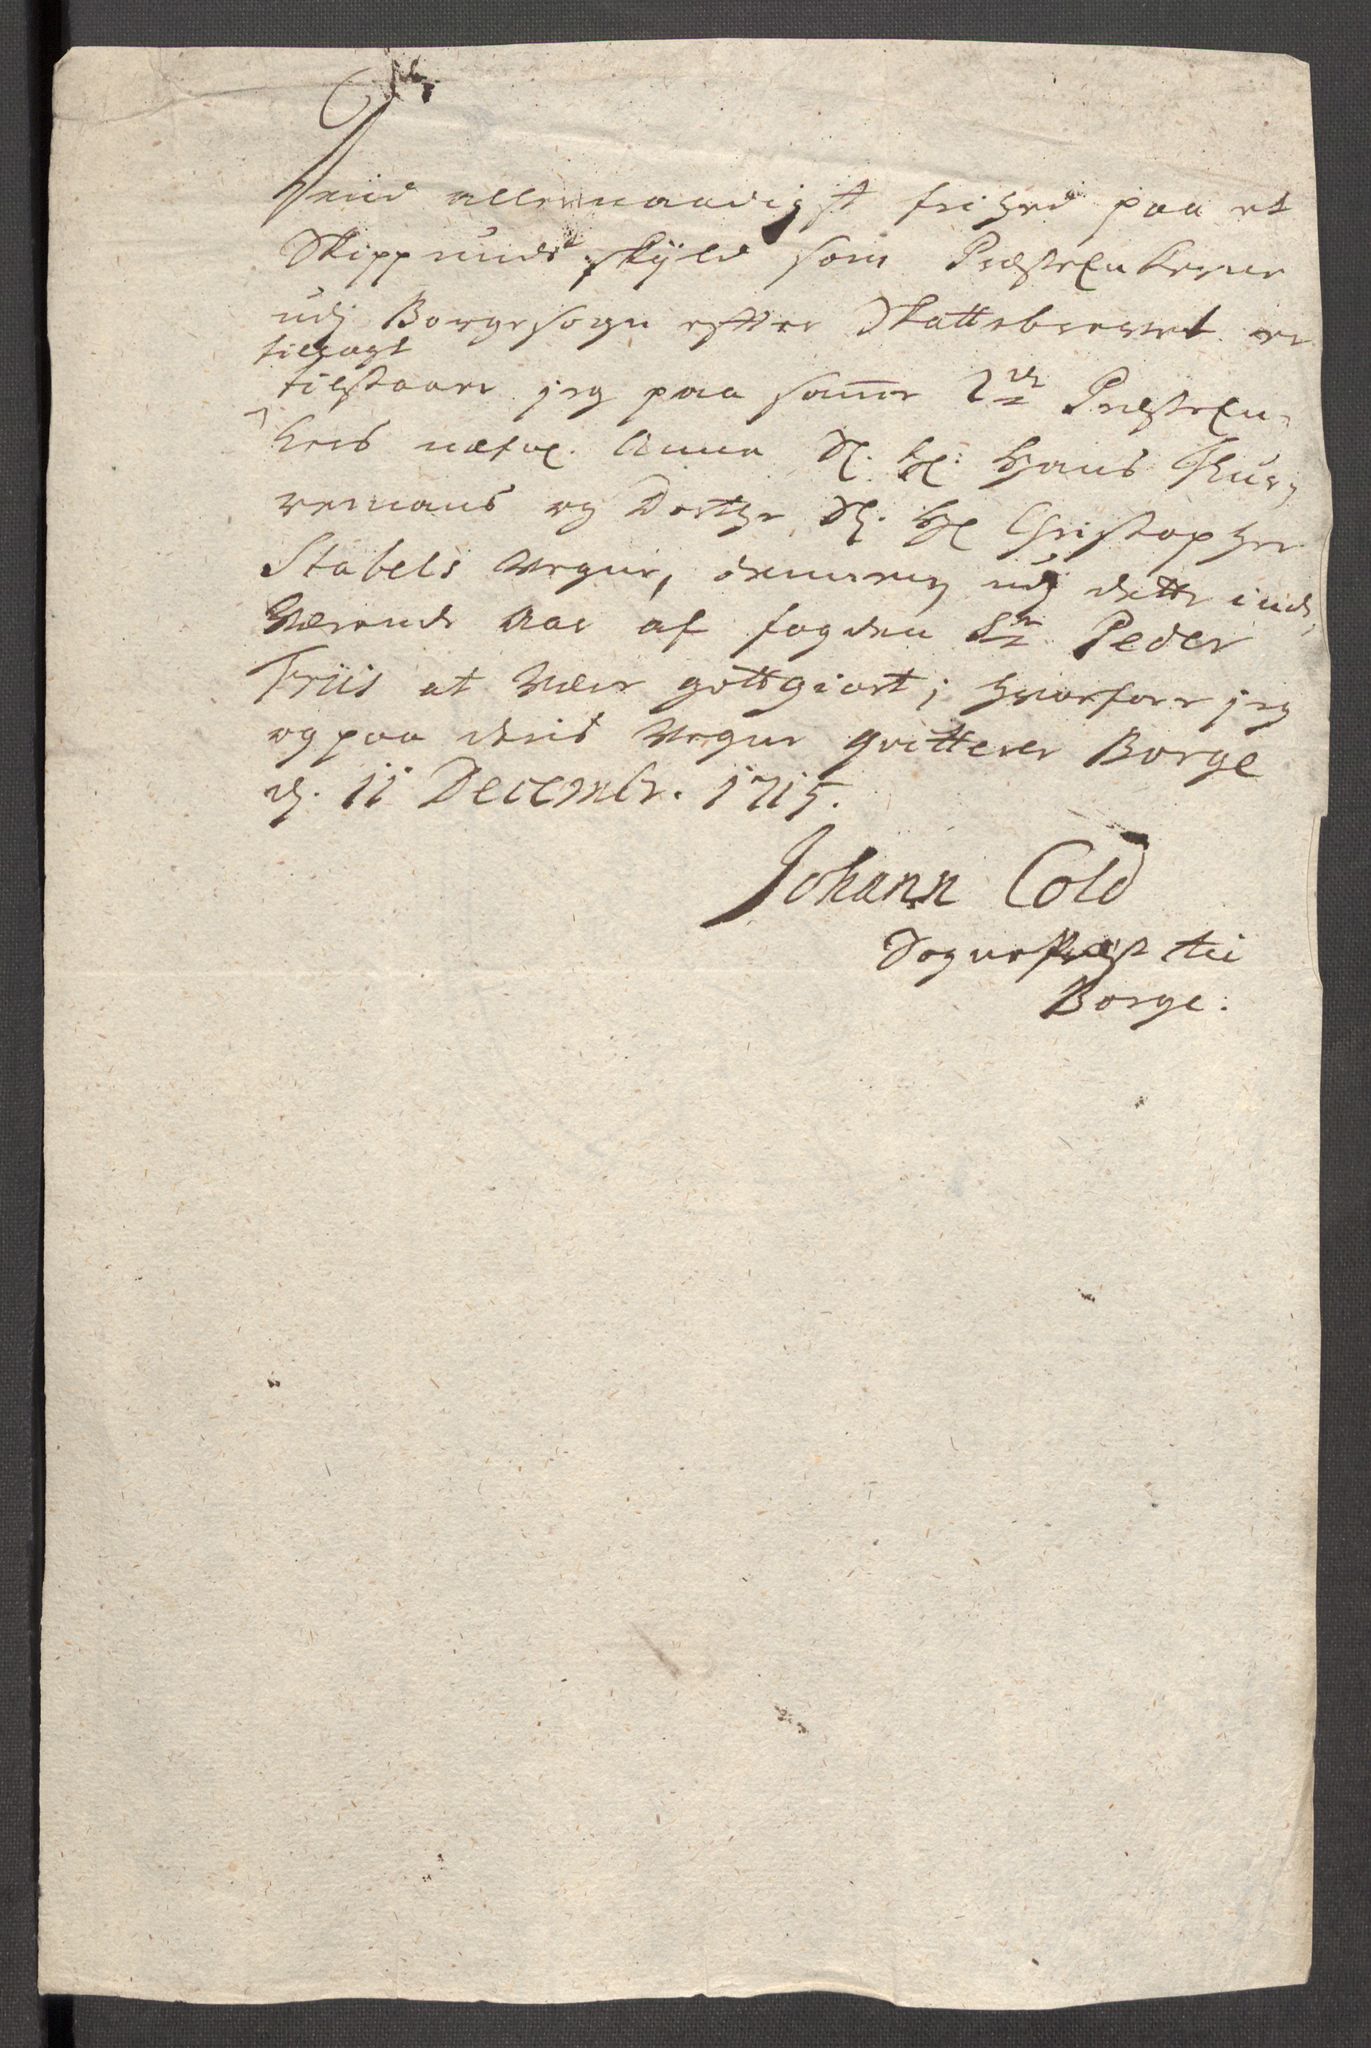 Den allernaadigst frihed paa et
Skippunds skyld som Præsteenkerne
udj Borgesogn efter Skattebrevet er
tilsagt
tilstaaer jeg paa samme 2de Præsteen-
kers Anna Sl. Hr. Hans
og Dorthe Sl. Hr Christopher
Stabels Vegne, dennem udj dette ind-
værende Aar af fogden Sr Peder
Friis at være gottgiort; hvorfore jeg
og paa deris Vegne qvitterer Borge
d. 11 Decembr. 1715.
Johann Cold
Sogneprest til
Borge.